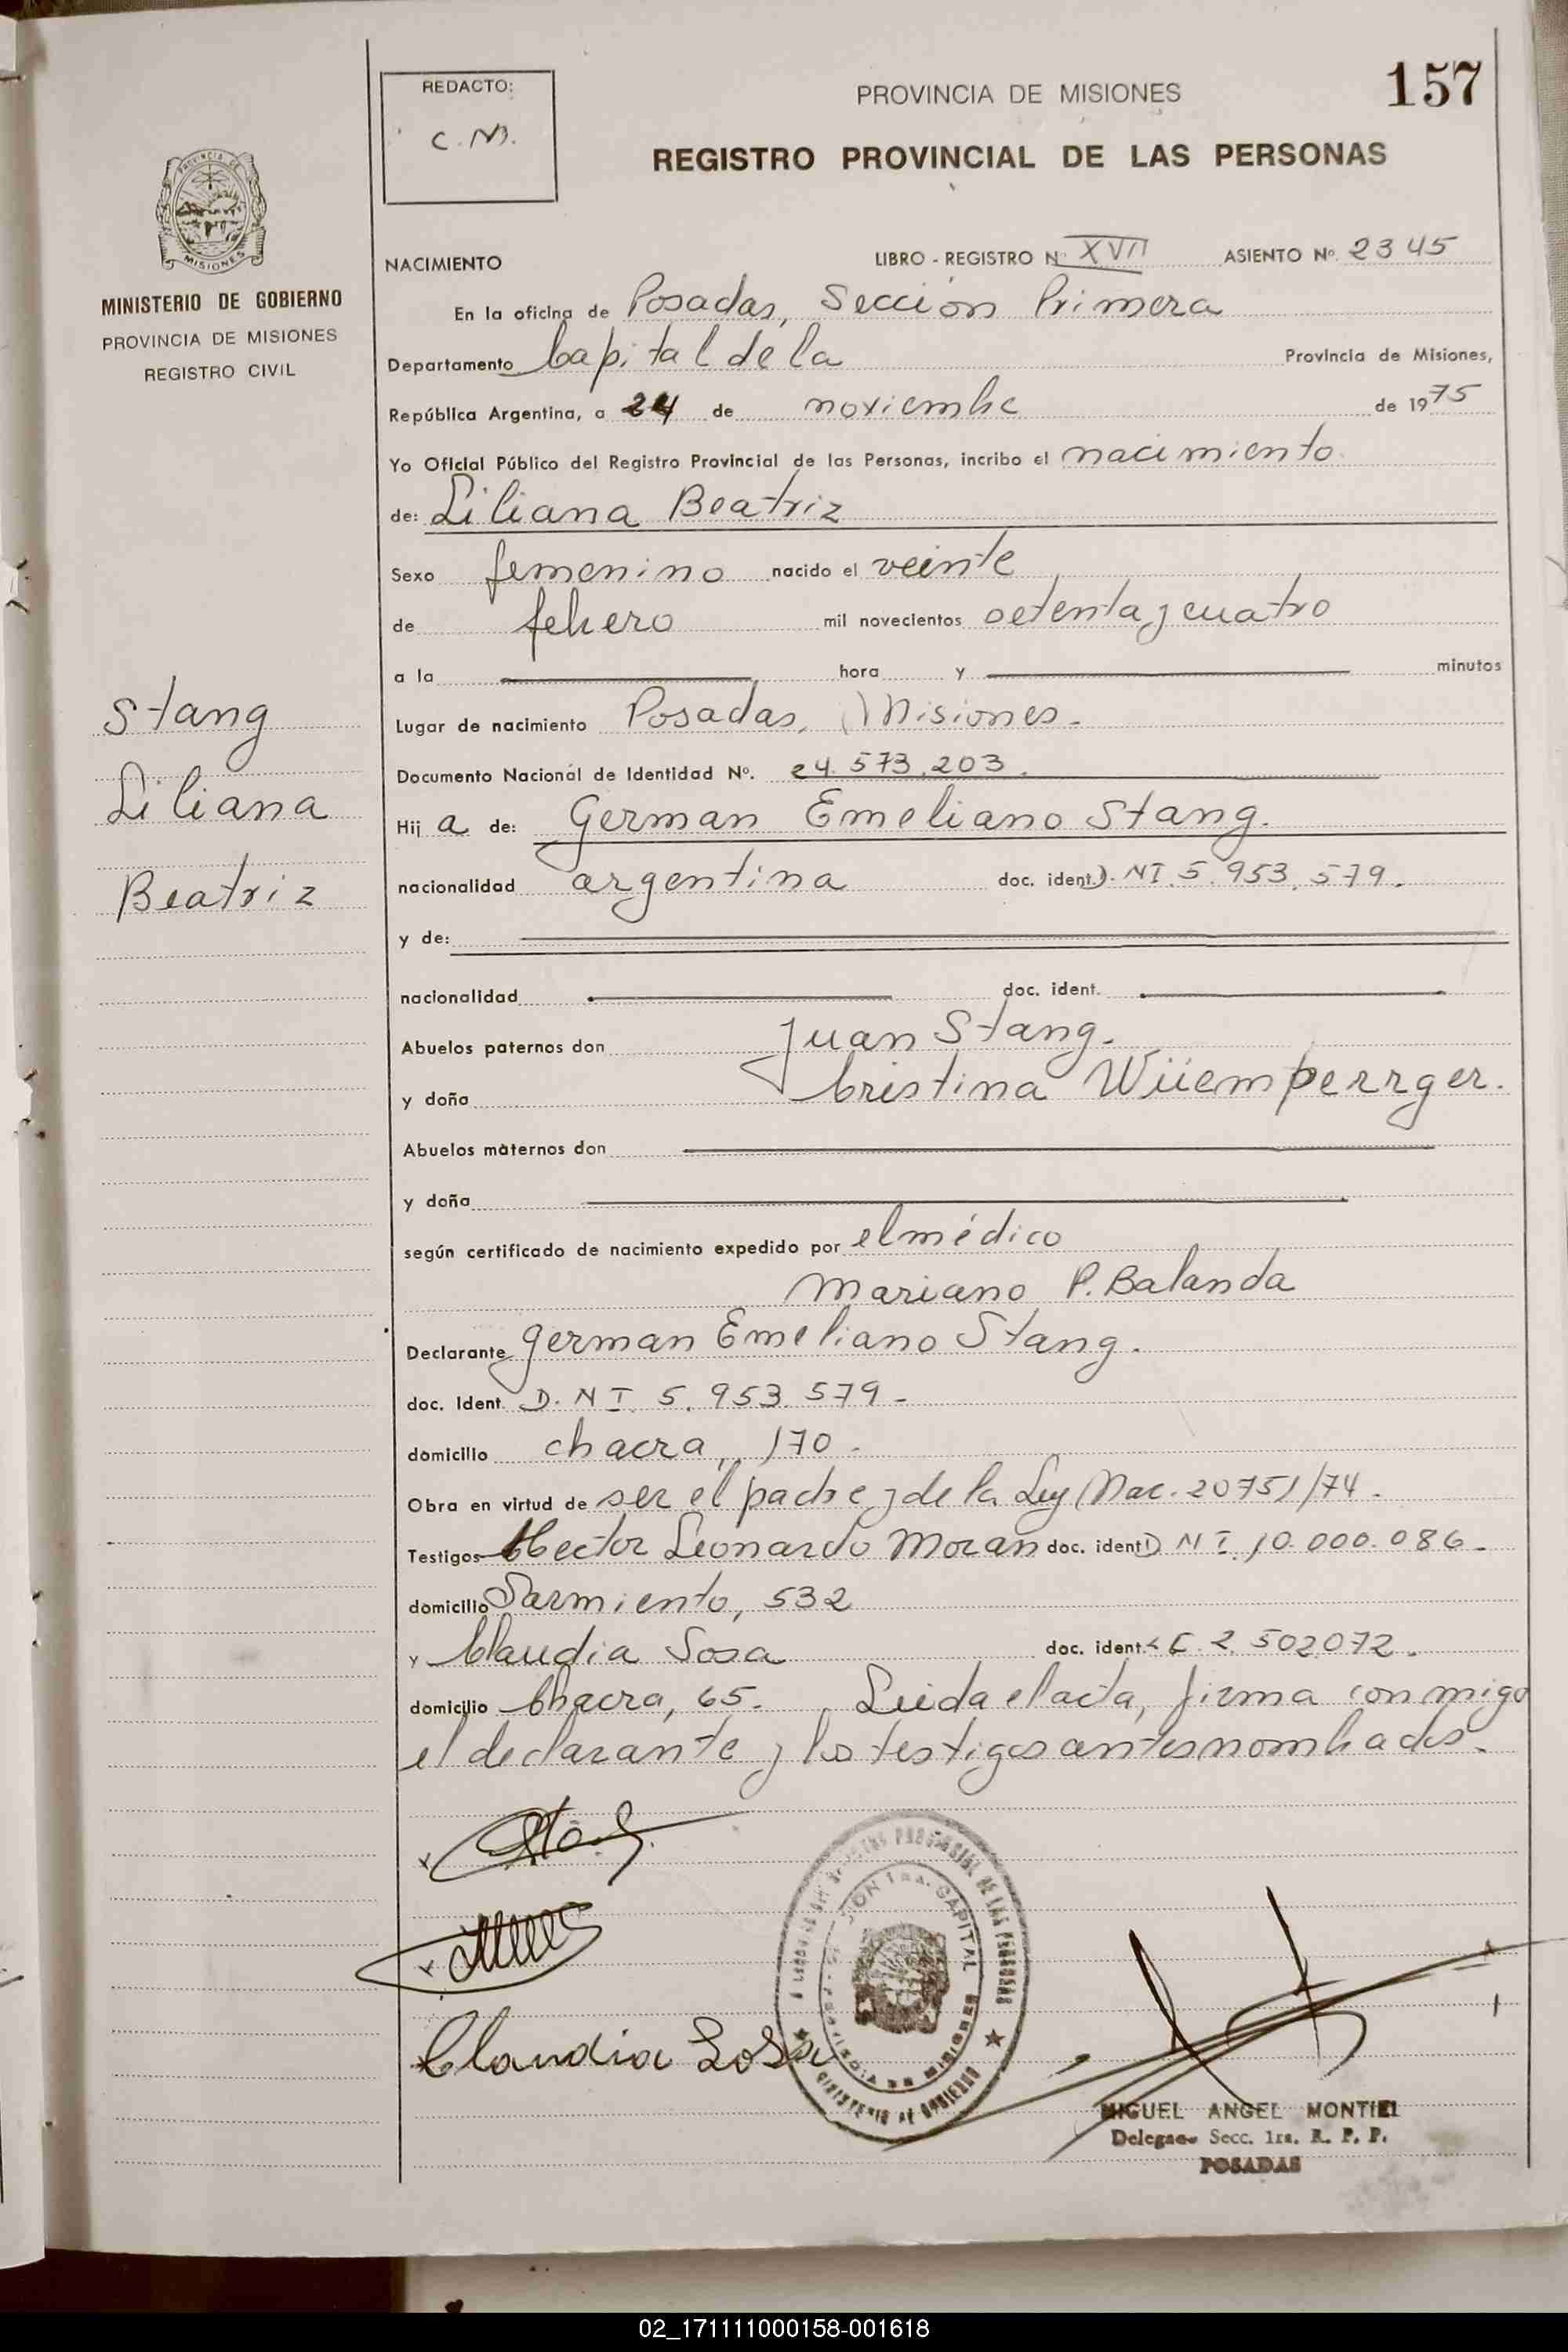 157
REDACTO:
C. M.
PROVINCIA DE MISIONES
REGISTRO PROVINCIAL DE LAS PERSONAS
PROVINCIA DE
MISIONES
MINISTERIO DE GOBIERNO
PROVINCIA DE MISIONES
REGISTRO CIVIL
NACIMIENTO LIBRO - REGISTRO Nº XVII ASIENTO Nº. 2345
En la oficina de Posadas, Sección Primera
Departamento Capital de la Provincia de Misiones,
República Argentina, a 24 de noviembre de 1975
Yo Oficial Público del Registro Provincial de las Personas, incribo el nacimiento
de: Liliana Beatriz
Sexo femenino nacido el veinte
de febrero mil novecientos setenta y cuatro
a la hora y minutos
Lugar de nacimiento Posadas, Misiones.
Documento Nacional de Identidad Nº. 24.573.203.
Hij a de: German Emeliano Stang.
nacionalidad argentina doc. ident. D.NI.5.953.579.
y de:
nacionalidad doc. ident.
Abuelos paternos don Juan Stang.
y doña Cristina Wüemperrger.
Abuelos maternos don
y doña
según certificado de nacimiento expedido por el médico
Mariano P. Balanda
Declarante German Emeliano Stang.
doc. Ident. D.NI 5.953.579-
domicilio chacra, 170.
Obra en virtud de ser el padre y de la Ley Nac. 20751/74.
Testigos Hector Leonardo Moran doc. ident D NI. 10.000.086-
domicilio Sarmiento, 532
y Claudia Sosa doc. ident. L C. 2.502.072.
domicilio Chacra, 65. Leida el acta, firma conmigo
el declarante y los testigos antes nombrados.
Stang
Liliana
Beatriz
Claudia Sosa
CAPITAL
PROVINCIA DE MISIONES
MINISTERIO DE GOBIERNO
MIGUEL ANGEL MONTIEL
Delegado Secc. 1ra. R. P. P.
POSADAS
02_171111000158-001618